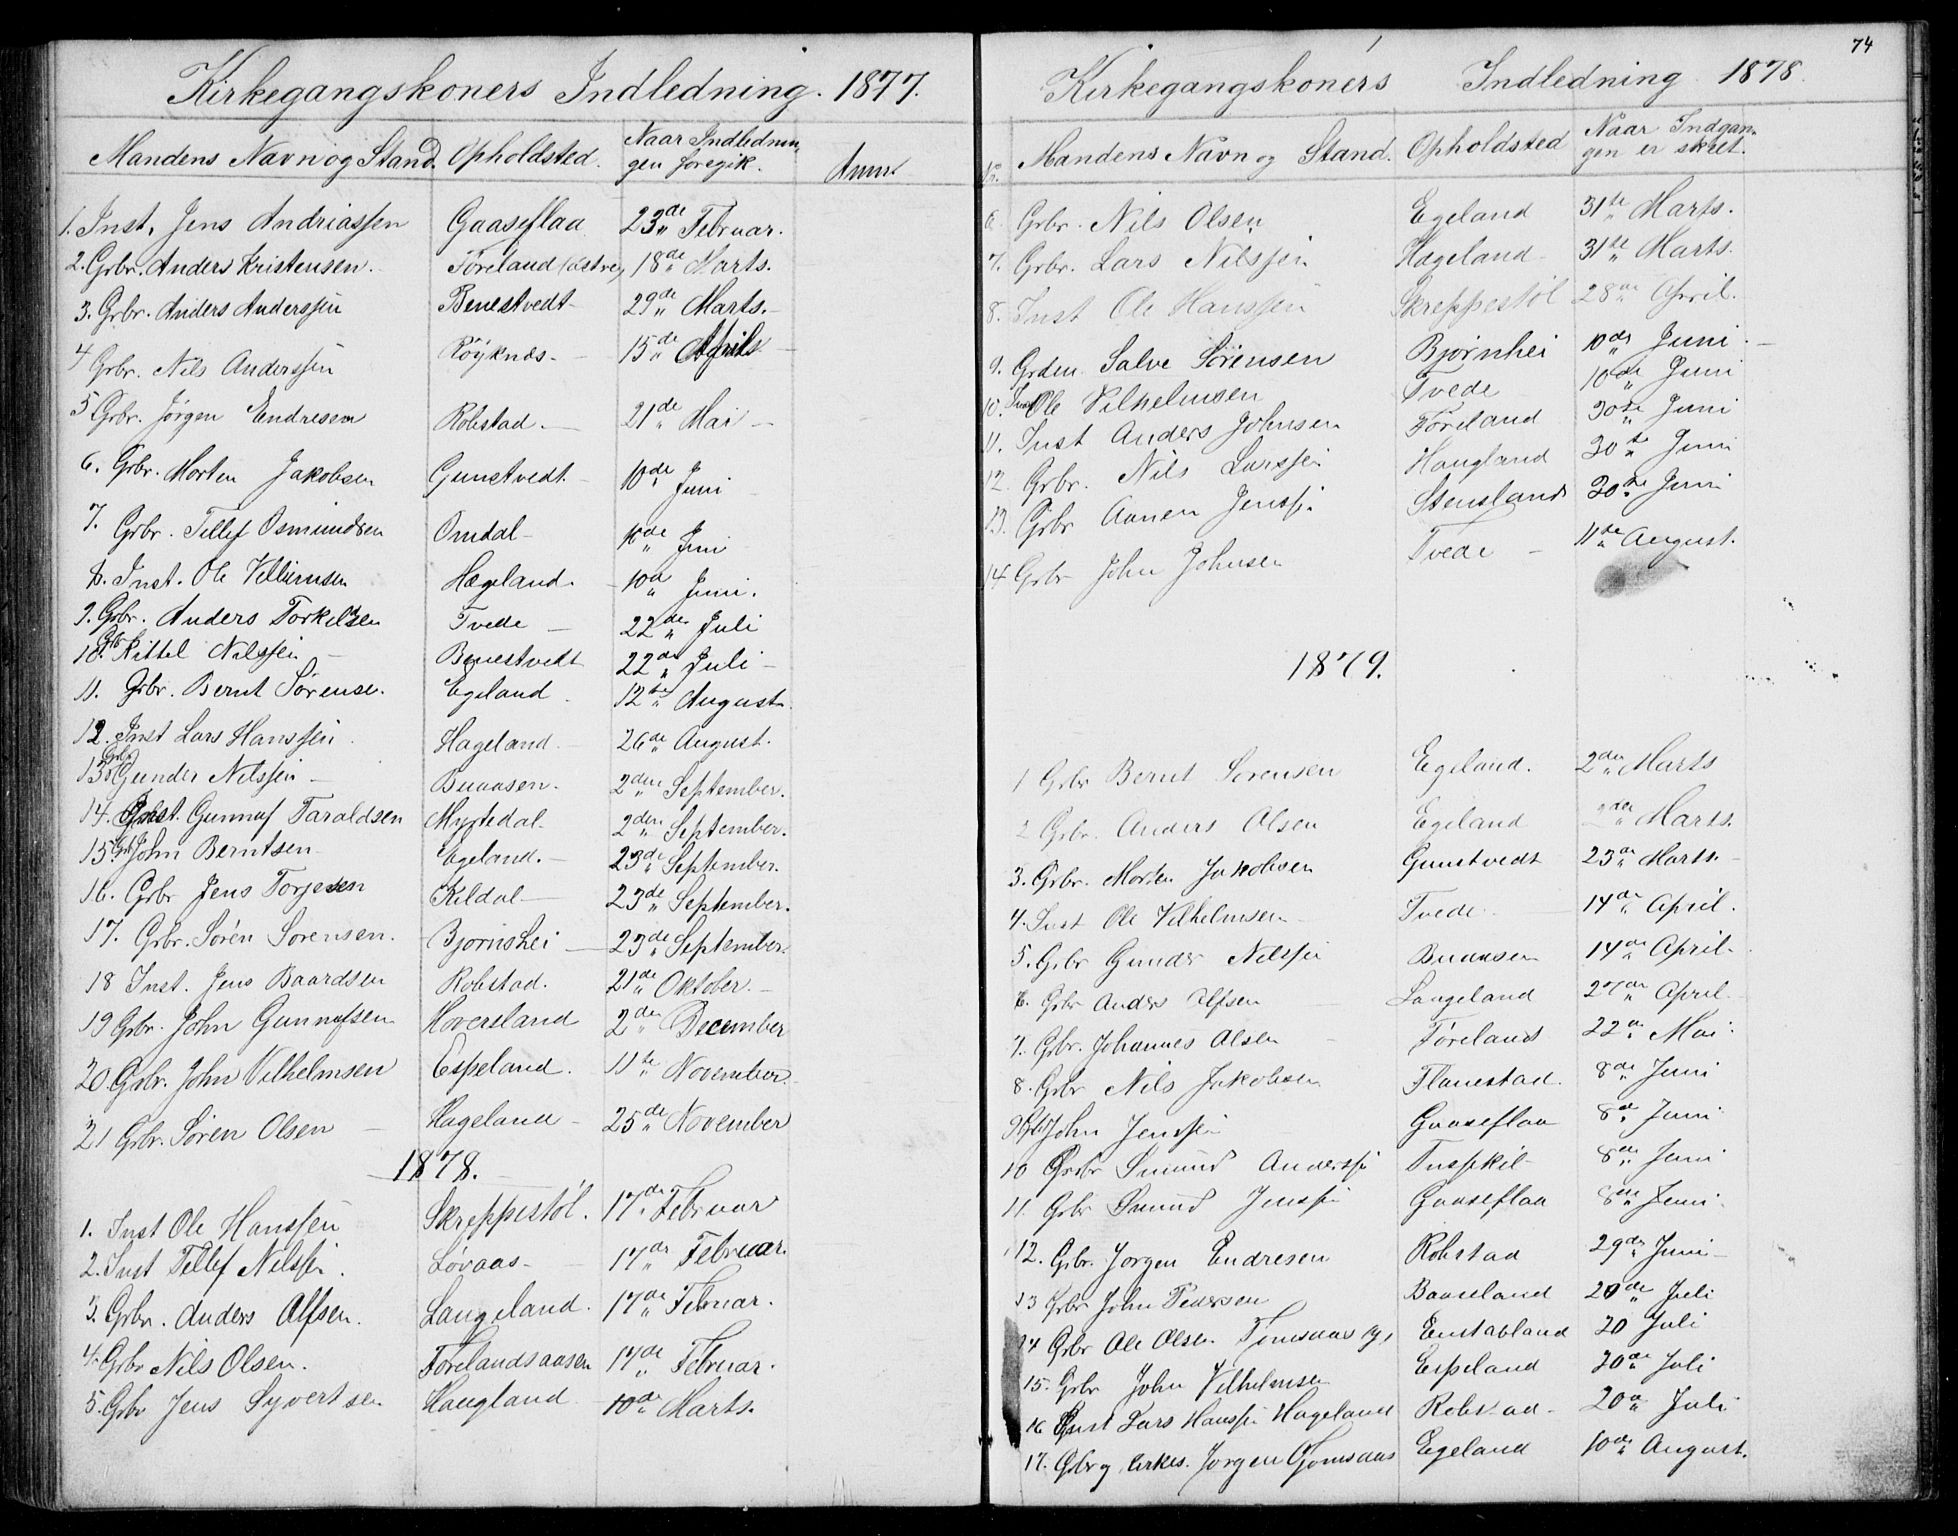 Kirkegangskoners Indledning. 1877.
Mandens Navn og Stand. Opholdsted. Naar Indlednin-
gen foregik. Anm
1. Inst. Jens Andriassen Gaaseflaa 23de Februar.
2. Grbr. Anders Kristensen. Føreland (østre) 18de Marts.
3. Grbr. Anders Anderssen Benestvedt 29de Marts.
4 Grbr. Nils Anderssen Røyknes 15de April
5 Grbr. Jørgen Endresen Robstad. 21de Mai
6. Grbr. Morten Jakobsen Gunstvedt. 10de Juni
7. Grbr. Tellef Osmundsen Omdal 10de Juni
8. Inst. Ole Villumsen Hægeland. 10de Juni.
9. Grbr. Anders Torkeldsen Tvede 22de Juli
10. Grb Kittel Nilssen Benestvedt 22de Juli
11. Grbr. Bernt Sørense. Egeland. 12te August
12. Inst Lars Hanssen Hageland. 26de August.
13. Grbr Gunder Nilssen Buaasen. 2den September.
14. Inst. Gunnuf Taraldsen Myrtedal. 2den September.
15. Grb John Berntsen Egeland. 23de September.
16. Grbr Jens Torjesen Kildal 23de September.
17. Grbr. Sørén Sørensen. Bjørnshei 23de September.
18 Inst. Jens Baardsen Robstad. 21de Oktober.
19 Grbr. John Gunnufsen Hoversland 2den December
20. Grbr. John Vilhelmsen Espeland. 11te November
21 Grbr. Søren Olsen Hageland 25de November
1878.
1. Inst Ole Hanssen Skreppestøl. 17de Februar
2. Inst Tellef Nilssen. Løvaas 17de Februar.
3. Grbr. Anders Alfsen. Langeland. 17de Februar.
4. Grbr Nils Olsen. Førelandsaasen 17de Februar.
5. Grbr Jens Syvertsen Haugland 10de Marts.
74
Kirkegangskonérs Indledning 1878.
No. Mandens Navn og Stand. Opholdsted Naar Indgan-
gen er skeet.
6 Grbr. Nils Olsen Egeland 31te Marts.
7. Grbr. Lars Nilssen Hægeland 31te Marts.
8. Inst Ole Hanssen Skreppestøl 28de April.
9. Grdm. Salve Sørensen Bjørnhei 10de Juni.
10. Inst Ole Vilhelmsen Tvede 10de Juni
11. Inst Anders Johnsen Føreland 30te Juni
12. Grbr. Nils Larssen Haugland 30te Juni
13. Grbr Aanen Jenssen Stensland 30te Juni
14 Grbr John Johnsen Tvede 11te August.
1879.
1 Grbr Bernt Sørensen Egeland. 2den Marts
2 Grbr. Anders Olsen Egeland 2den Marts.
3. Grbr. Morten Jakobsen Gunstvedt 23de Marts.
4. Inst Ole Vilhelmsen Tvede 14de April.
5. Grbr Gunder Nilssen Buaasen 14de April.
6. Grbr Anders Alfsen Langeland 27de April.
7. Grbr. Johannes Olsen Føreland 22de Mai
8. Grbr Nils Jakobsen Flanestad. 8de Juni
9 Grbr John Jenssen Gaaseflaa 8de Juni
10 Grbr Smund Anderssen 8de Juni
11. Grbr Osmund Jenssen Gaaseflaa 8de Juni.
12. Grbr. Jørgen Endresen Robstad 29de Juni
13 Grbr John Pedersen Baaseland 20de Juli
14 Grbr Ole Olsen Tomsaas 20 Juli
15. Grbr John Vilhelmsen Espeland 20de Juli
16 Inst Lars Hanssen Hageland Robstad. 20de Juli
17. Grbr og kirkes. Jørgen Gjømsaas Egeland 10de August.